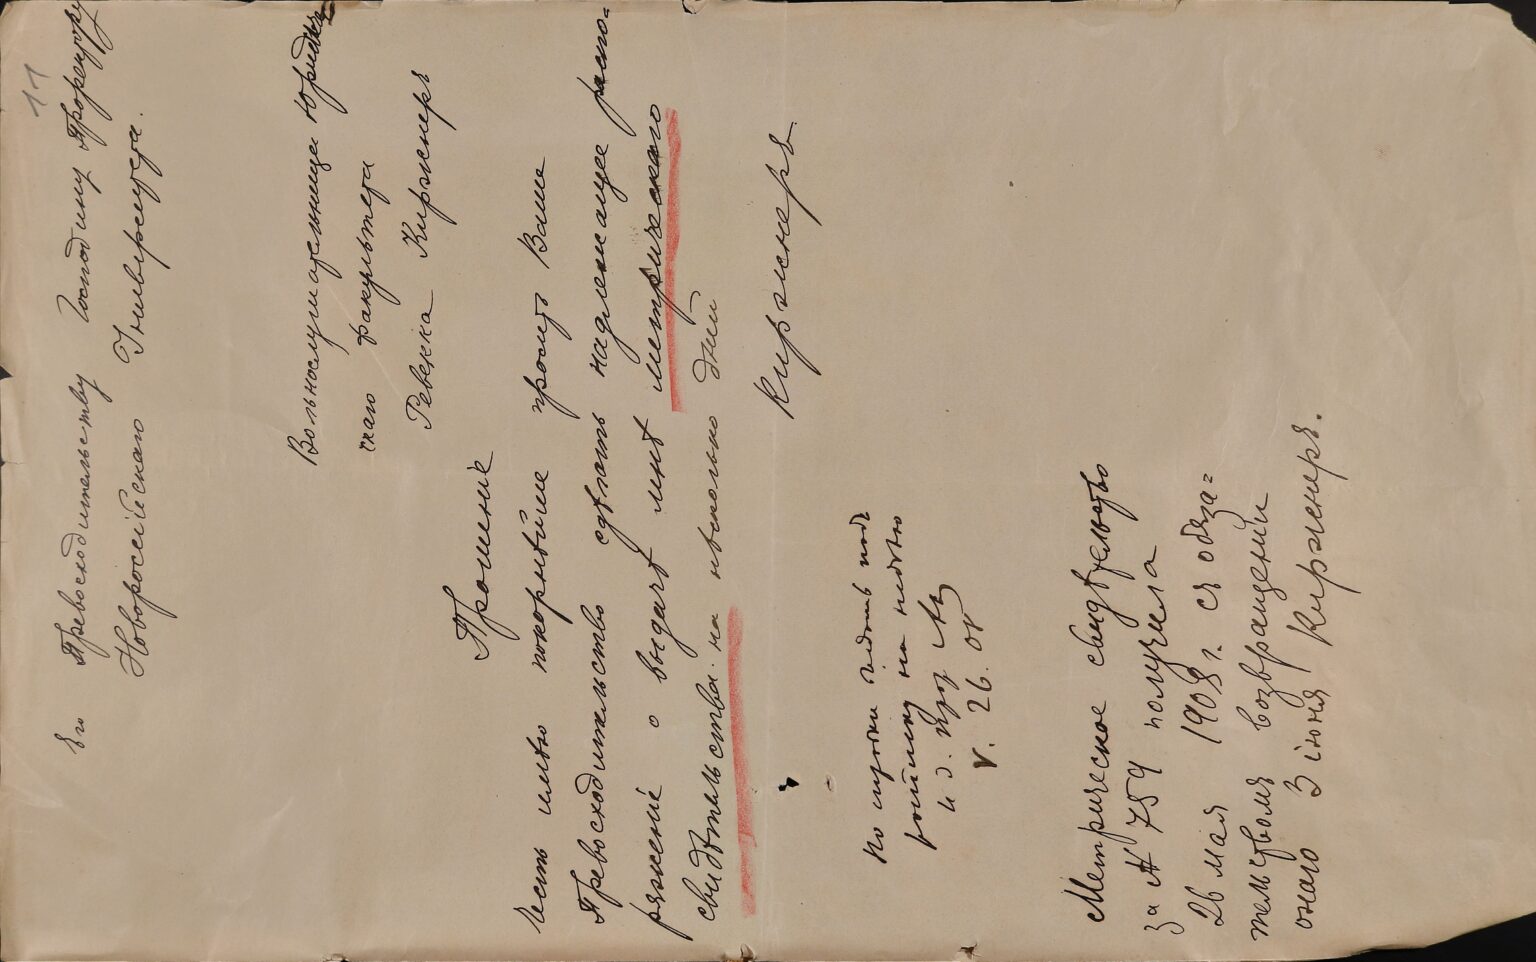 11
Его Превосходительству Господину Проректору
Новороссійскаго Университета.
Вольнослушательницы Юридиче
скаго факультета
Ревекка Киржнеръ
Прошеніе
Честь имѣю покорнѣйше просить Ваше
Превосходительство сдѣлать надлежащее распо=
ряженіе о выдачѣ мнѣ метрическаго
свидѣтельства на нѣсколько дней
Киржнеръ.
на недѣлю
V. 26. 08
Метрическое свидѣтельство
за № 759 получила
26 мая 1908 г. съ обяза=
тельствомъ возвращенія
онаго 3 іюня Киржнеръ.